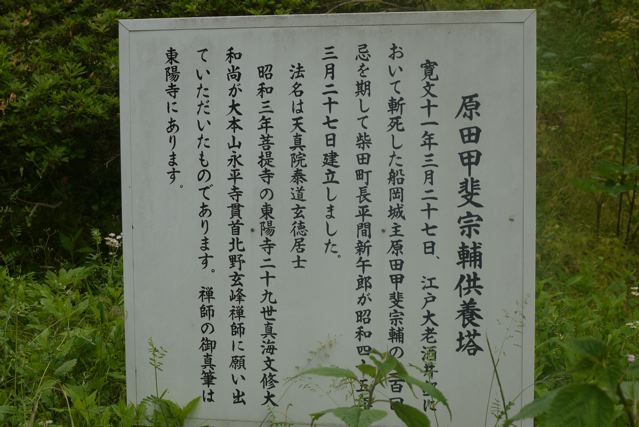 原田甲斐宗輔供養塔
寛文十一年三月二十七日、江戸大老酒井邸に
おいて斬死した船岡城主原田甲斐宗輔の三百回
忌を期して柴田町長平間新午郎が昭和四十五年
三月二十七日建立しました。
法名は天真院泰道玄徳居士
昭和三年菩提寺の東陽寺二十九世真海文修大
和尚が大本山永平寺貫首北野玄峰禅師に願い出
ていただいたものであります。禅師の御真筆は
東陽寺にあります。